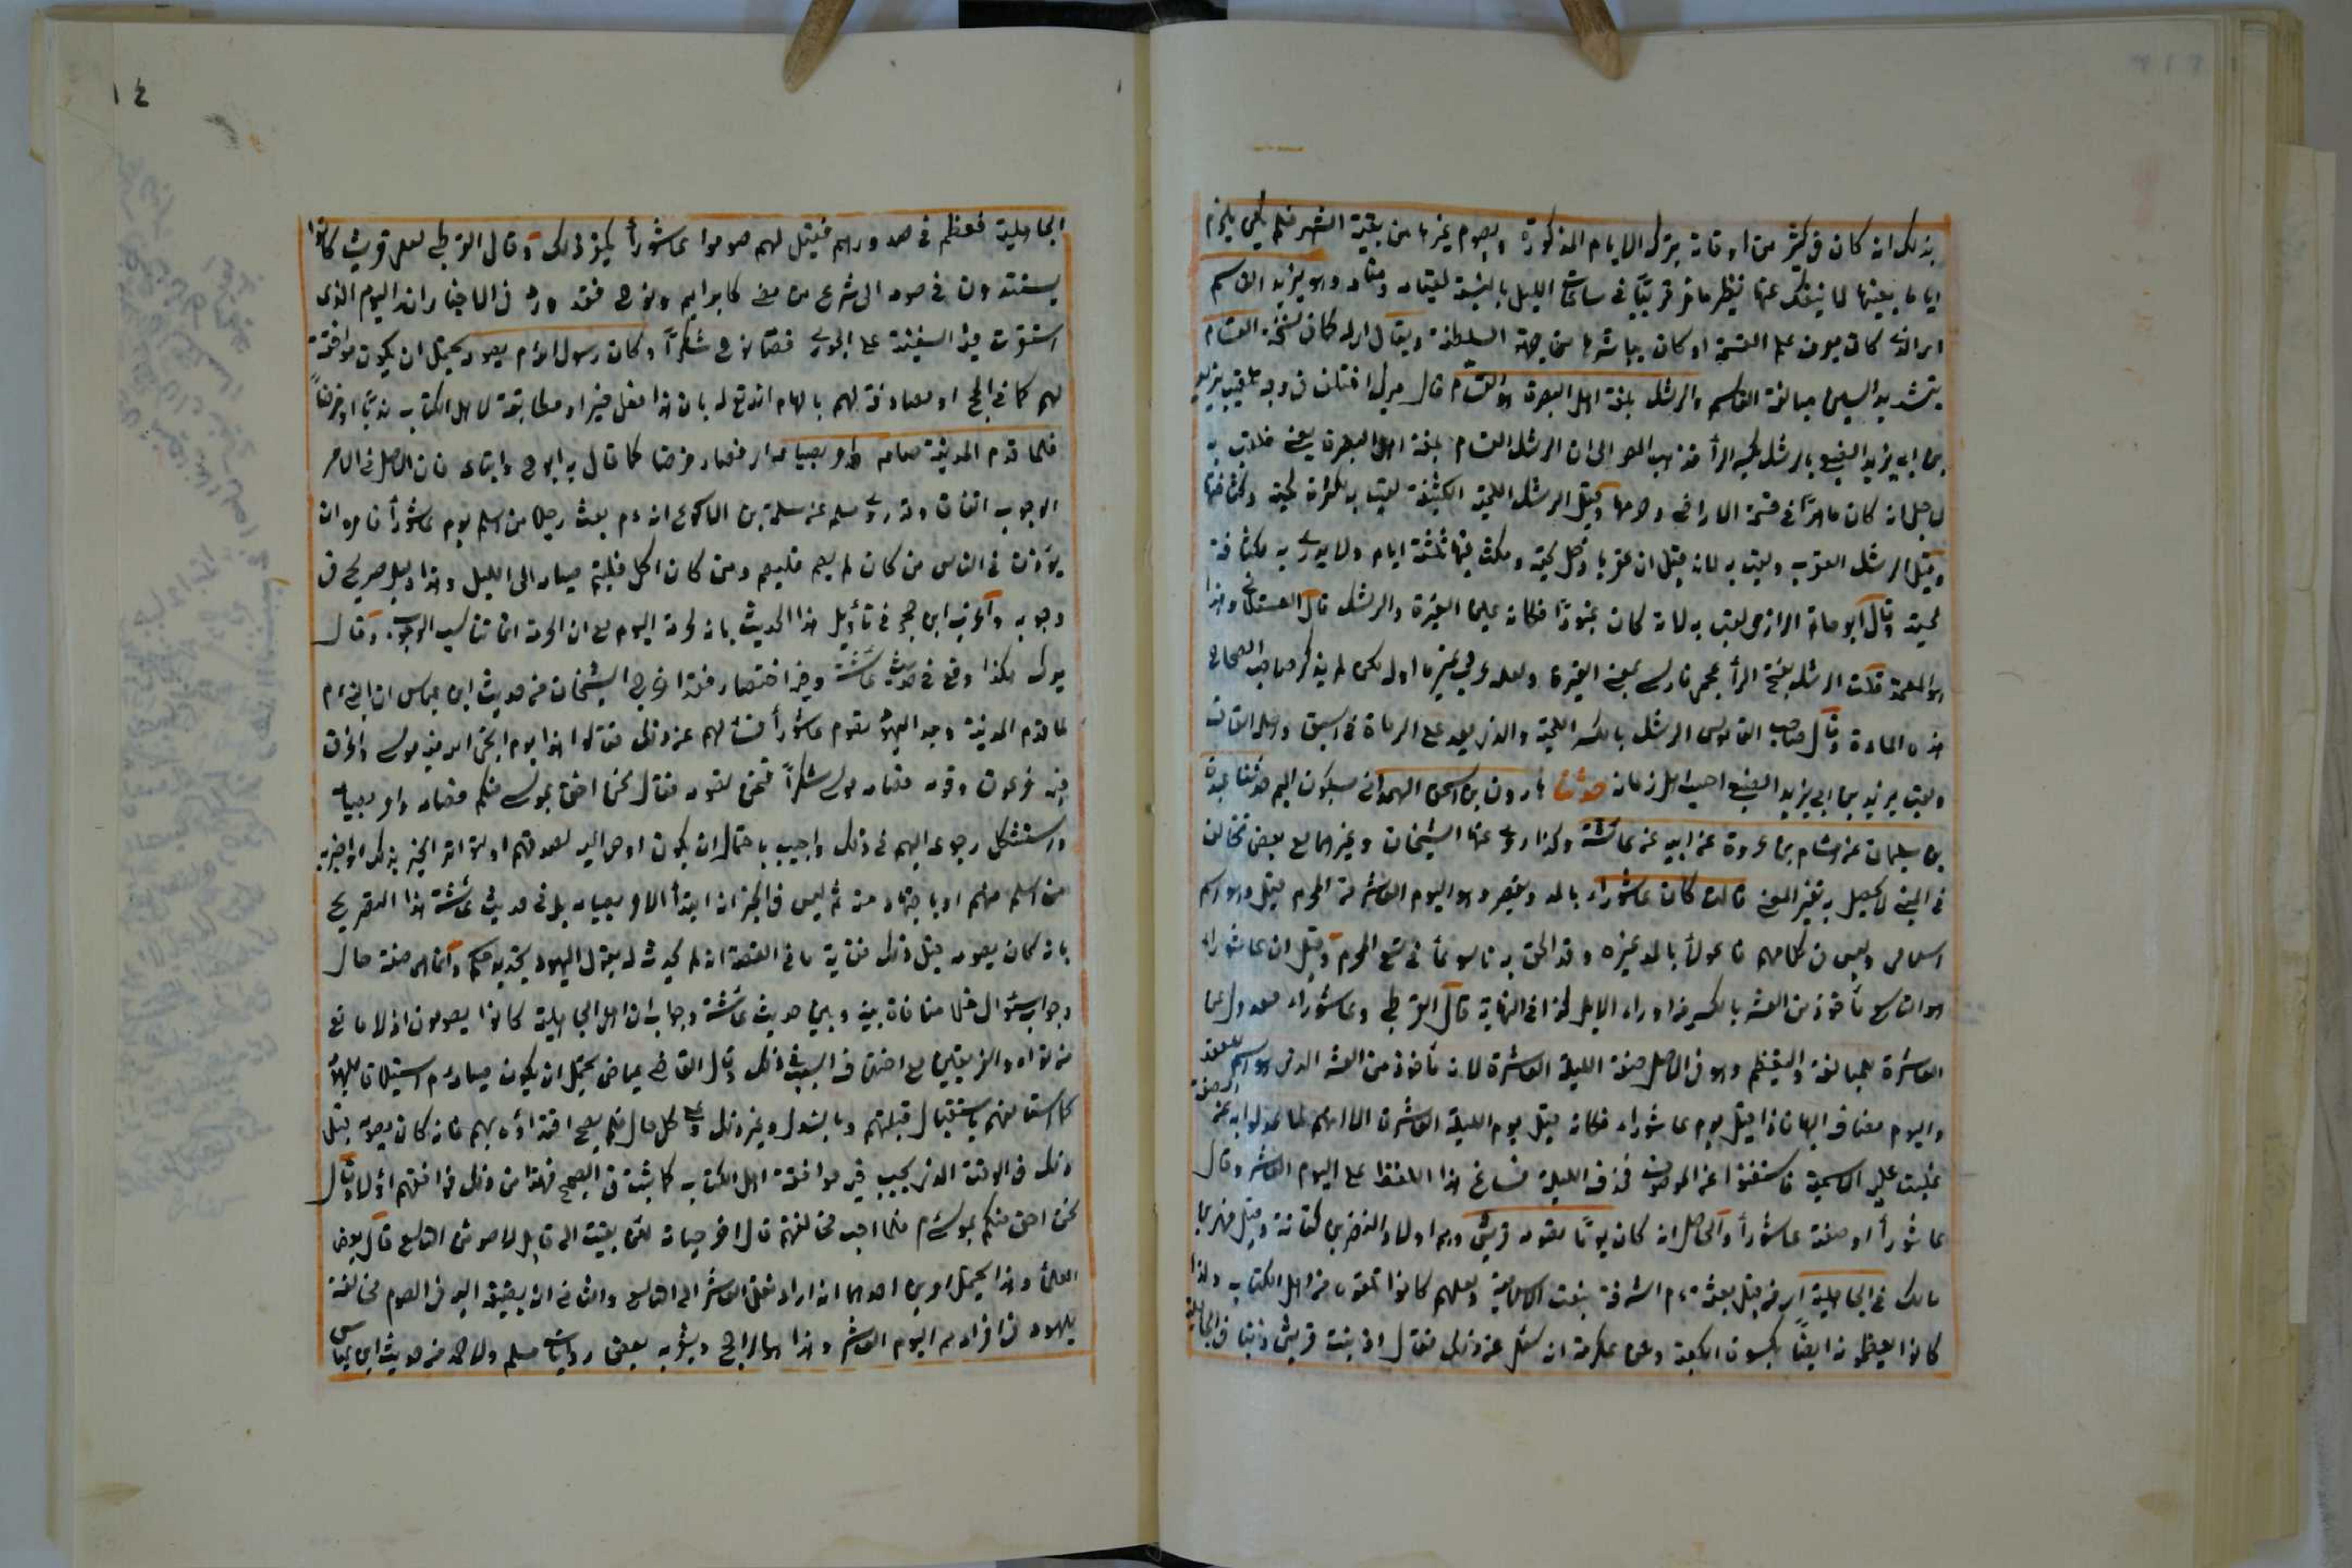 بذلك انه كان في كثير من اوقاته يترك الايام المذكورة ويصوم غيرها من بقية الشهر فلم يكن يلزم
اياما بعينها لا ينفك عنها نظير ما مر قريبا في ساعات الليل بالنسبة لقيامه ومنامه وهو يزيد القاسم
اي الذي كان يعرف علم القسمة او كان يباشرها من جهة السلطنة ويقال له كان القسام
بتشديد السين مبالغة القاسم والرشك بلغة اهل البصرة هو القسام قال ميرك اختلف في وجه تلقيب يزيد
بن ابي يزيد الضبعي بالرشك بكسر الراء فذهب المص الى ان الرشك القسام بلغة اهل البصرة يعني فلقب به
لاجل انه كان ماهرا في قسمة الاراضي وقيل الرشك اللحية الكثيفة لقب به لكثرة لحيته وكثافتها
وقيل الرشك العقرب ولقب به لانه قيل ان عقربا دخل لحيته ومكث فيها ثلثة ايام ولا يدري به لكثافة
لحيته وقال ابو حاتم الرازي لقب به لانه كان غيورا فكانه الغيرة والرشك قال العسقلاني وهذا
هو المعتمد قلت الرشك بفتح الراء فارسي بمعنى الغيرة ولعله عرب بتغيير اوله لكن لم يذكر صاحب الصحاح
هذه المادة وقال صاحب القاموس الرشك بالكسر الكبير اللحية والذي يعد على الرماة في السبق واصله القاف
ولقب يزيد بن ابي يزيد الضبعي احسب اهل زمانه حدثنا هارون بن اسحق الهمداني بسكون الميم حدثنا عبدة
بن سليمان عن هشام بن عروة عن ابيه عن عائشة وكذا روى عنها الشيخان وغيرهما مع بعض تخالف
في المبنى لا يحصل به تغير المعنى قالت كان عاشوراء بالمد ويقصر وهو اليوم العاشر من المحرم قيل وهو اسم
اسلامي وليس في كلامهم فاعولاء بالمد غيره وقد الحق به تاسوعاء في تاسع المحرم وقيل ان عاشوراء
هو التاسع مأخوذ من العشر بالكسر في اوراد الابل كذا في النهاية قال القرطبي وعاشوراء معدول عن
العاشرة للمبالغة والتعظيم وهو في الاصل صفة الليلة العاشرة لانه مأخوذ من العشر الذي هو اسم للعقد
واليوم مضاف اليها فاذا قيل يوم عاشوراء فكانه قيل يوم الليلة العاشرة الا انهم لما عدلوا به عن الصفة
غلبت عليه الاسمية فاستغنوا عن الموصوف فحذف الليلة فساغ هذا اللفظ على اليوم العاشر وقال
عاشوراء او صفة عاشوراء والحاصل انه كان يوما يصومه قريش وهم اولاد النضر بن كنانة وقيل فهر بن
مالك في الجاهلية اي من قبل بعثته ءم المشرفة بنعت الاسلامية ولعلهم كانوا تلقوه من اهل الكتاب ولذا
كانوا يعظمونه ايضا بكسوة الكعبة وعن عكرمة انه سئل عن ذلك فقال اذنبت قريش ذنبا في الجاهلية
١٤
الجاهلية فعظم في صدورهم فقيل لهم صوموا عاشوراء يكفر ذلك وقال القرطبي لعل قريشا كانوا
يستندون في صومه الى شرع من مضى كابراهيم ونوح فقد ورد في الاخبار انه اليوم الذي
استقرت فيه السفينة على الجودي فصامه نوح شكرا وكان رسول الله ءم يصومه يحتمل ان يكون موافقة
لهم كما في الحج او مصادفة لهم بالهام الله تع له بان هذا فعل خير او مطابقة لاهل الكتاب
فلما قدم المدينة صامه وامر بصيامه اي فصار فرضا كما قال به ابو ح واتباعه فان الاصل في الامر
الوجوب اتفاقا وقد روى مسلم عن سلمة بن الاكوع انه ءم بعث رجلا من اسلم يوم عاشوراء فامره ان
يؤذن في الناس من كان لم يصم فليصم ومن كان اكل فليتم صيامه الى الليل وهذا دليل صريح في
وجوبه وأغرب ابن حجر في تأويل هذا الحديث بانه لحرمة اليوم مع ان الحرمة انما تناسب الوجوب وقال
ميرك هكذا وقع في حديث عائشة وفيه اختصار فقد اخرج الشيخان من حديث ابن عباس ان النبي ءم
لما قدم المدينة وجد اليهود تصوم عاشوراء فسألهم عن ذلك فقالوا هذا يوم انجى الله فيه موسى واغرق
فيه فرعون وقومه فصامه موسى شكرا فنحن نصومه فقال نحن احق بموسى منكم فصامه وامر بصيامه
واستشكل رجوعه اليهم في ذلك واجيب باحتمال ان يكون اوحي اليه بصدقهم او تواتر الخبر بذلك او اخبره
من اسلم منهم او باجتهاد منه ثم ليس في الخبر انه ابتدأ الامر بصيامه بل في حديث عائشة هذا التصريح
بانه كان يصومه قبل ذلك فغاية ما في القصة انه لم يحدث له بقول اليهود تجديد حكم وانما هي صفة حال
وجواب سؤال فلا منافاة بينه وبين حديث عائشة وجاء ان اهل الجاهلية كانوا يصومون اذ لا مانع
من توارد الفريقين مع اختلاف السبب في ذلك وقال القاضي عياض يحتمل ان يكون صيامه ءم استيلافا لليهود
كما استألفهم باستقبال قبلتهم وبالسدل وغير ذلك وعلى كل حال فلم يصح اقتداؤه بهم فانه كان يصومه قبل
ذلك في الوقت الذي يحب فيه موافقة اهل الكتاب كما ثبت في الصحيح فهذا من ذلك فوافقهم اولا وقال
نحن احق منكم بموسى ءم فلما احب مخالفتهم قال في اخر حياته لئن بقيت الى قابل لاصومن التاسع قال بعض
العلماء وهذا يحتمل امرين احدهما انه اراد نقل العاشر الى التاسع والثاني ان يضيفه اليه في الصوم مخالفة
لليهود في افرادهم اليوم العاشر وهذا هو الراجح ويشعر به بعض روايات مسلم ولاحمد من حديث ابن عباس